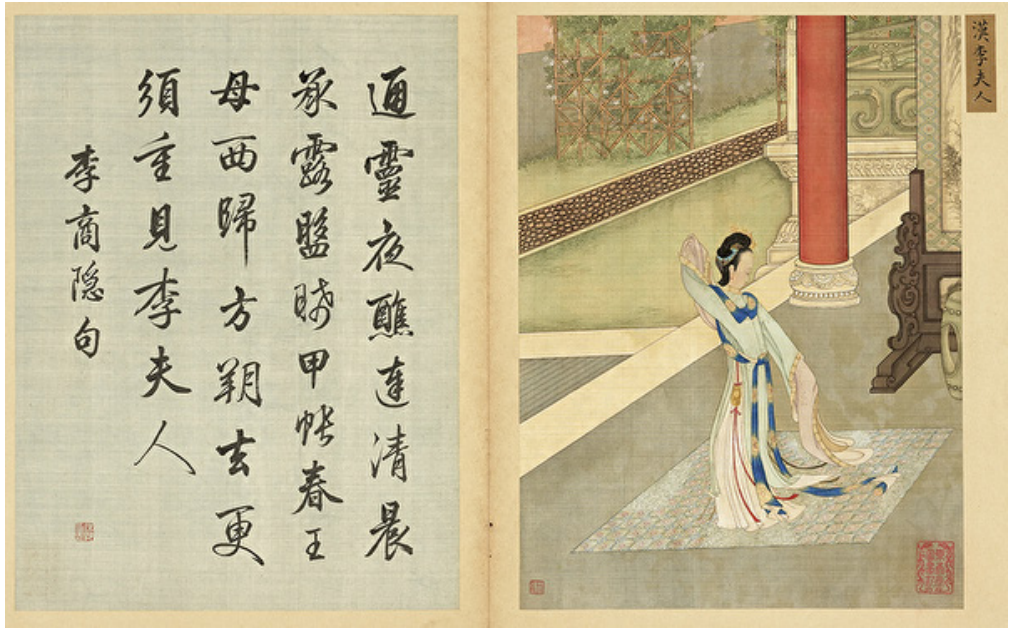 漢李夫人
通靈夜醮達清晨
承露盤晞甲帳春王
母西歸方朔去更
須重見李夫人
李商隱句